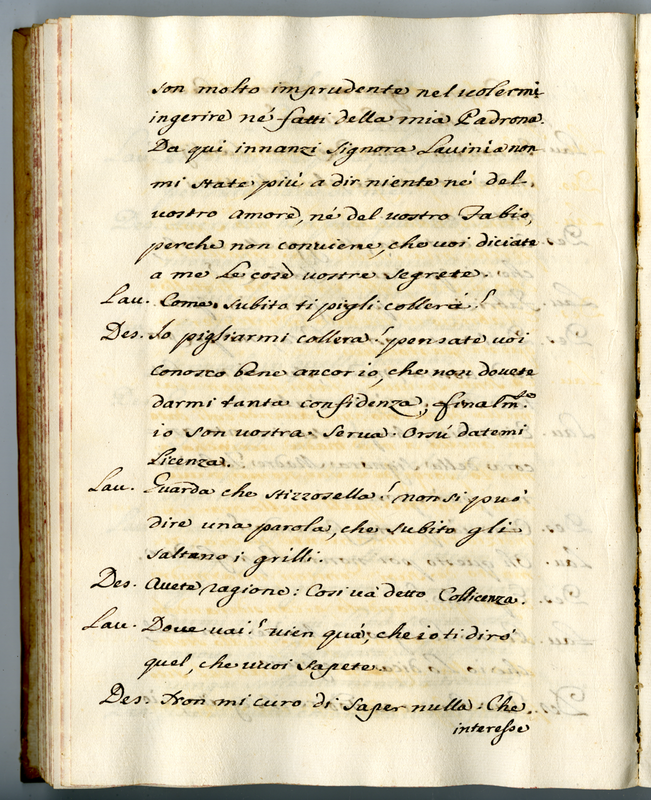 son molto imprudente nel volermi
ingerire né fatti della mia Padrona.
Da qui innanzi Signora Lavinia non
mi state più a dir niente né del
vostro Amore, né del vostro Fabio,
perche non conviene, che voi diciate
a me Le cose vostre segrete.
Lav. Come, subito ti pigli collera!
Des. Io pigliarmi collera! pensate voi
conosco bene ancor io, che non dovete
darmi tanta confidenza, finalm.te
io son vostra Serva. Orsú datemi
Licenza.
Lav. Guarda che stizzosella! non si può
dire una parola, che subito gli
saltano i grilli.
Des. Avete ragione: Cosi và detto Collicenza.
Lav. Dove vai! vien quá, che io ti dirò
quel, che vuoi sapete.
Des. Non mi curo di saper nulla: Che
interesse